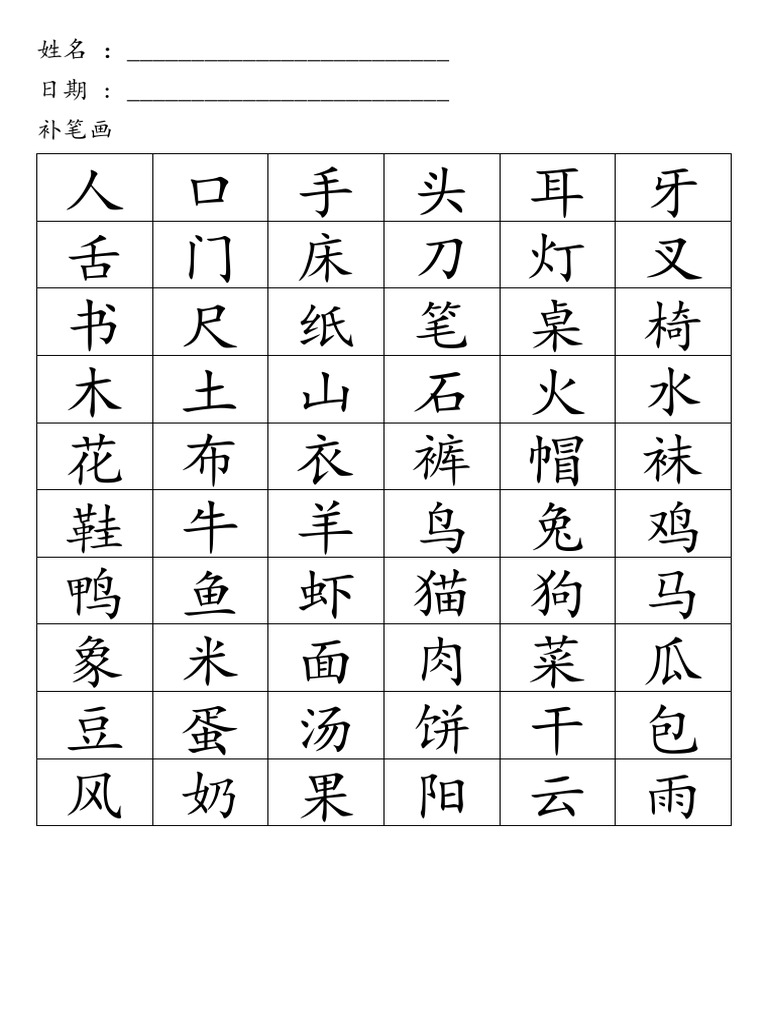 姓名 : _________________________
日期 : _________________________
补笔画
人 口 手 头 耳 牙
舌 门 床 刀 灯 叉
书 尺 纸 笔 桌 椅
木 土 山 石 火 水
花 布 衣 裤 帽 袜
鞋 牛 羊 鸟 兔 鸡
鸭 鱼 虾 猫 狗 马
象 米 面 肉 菜 瓜
豆 蛋 汤 饼 干 包
风 奶 果 阳 云 雨